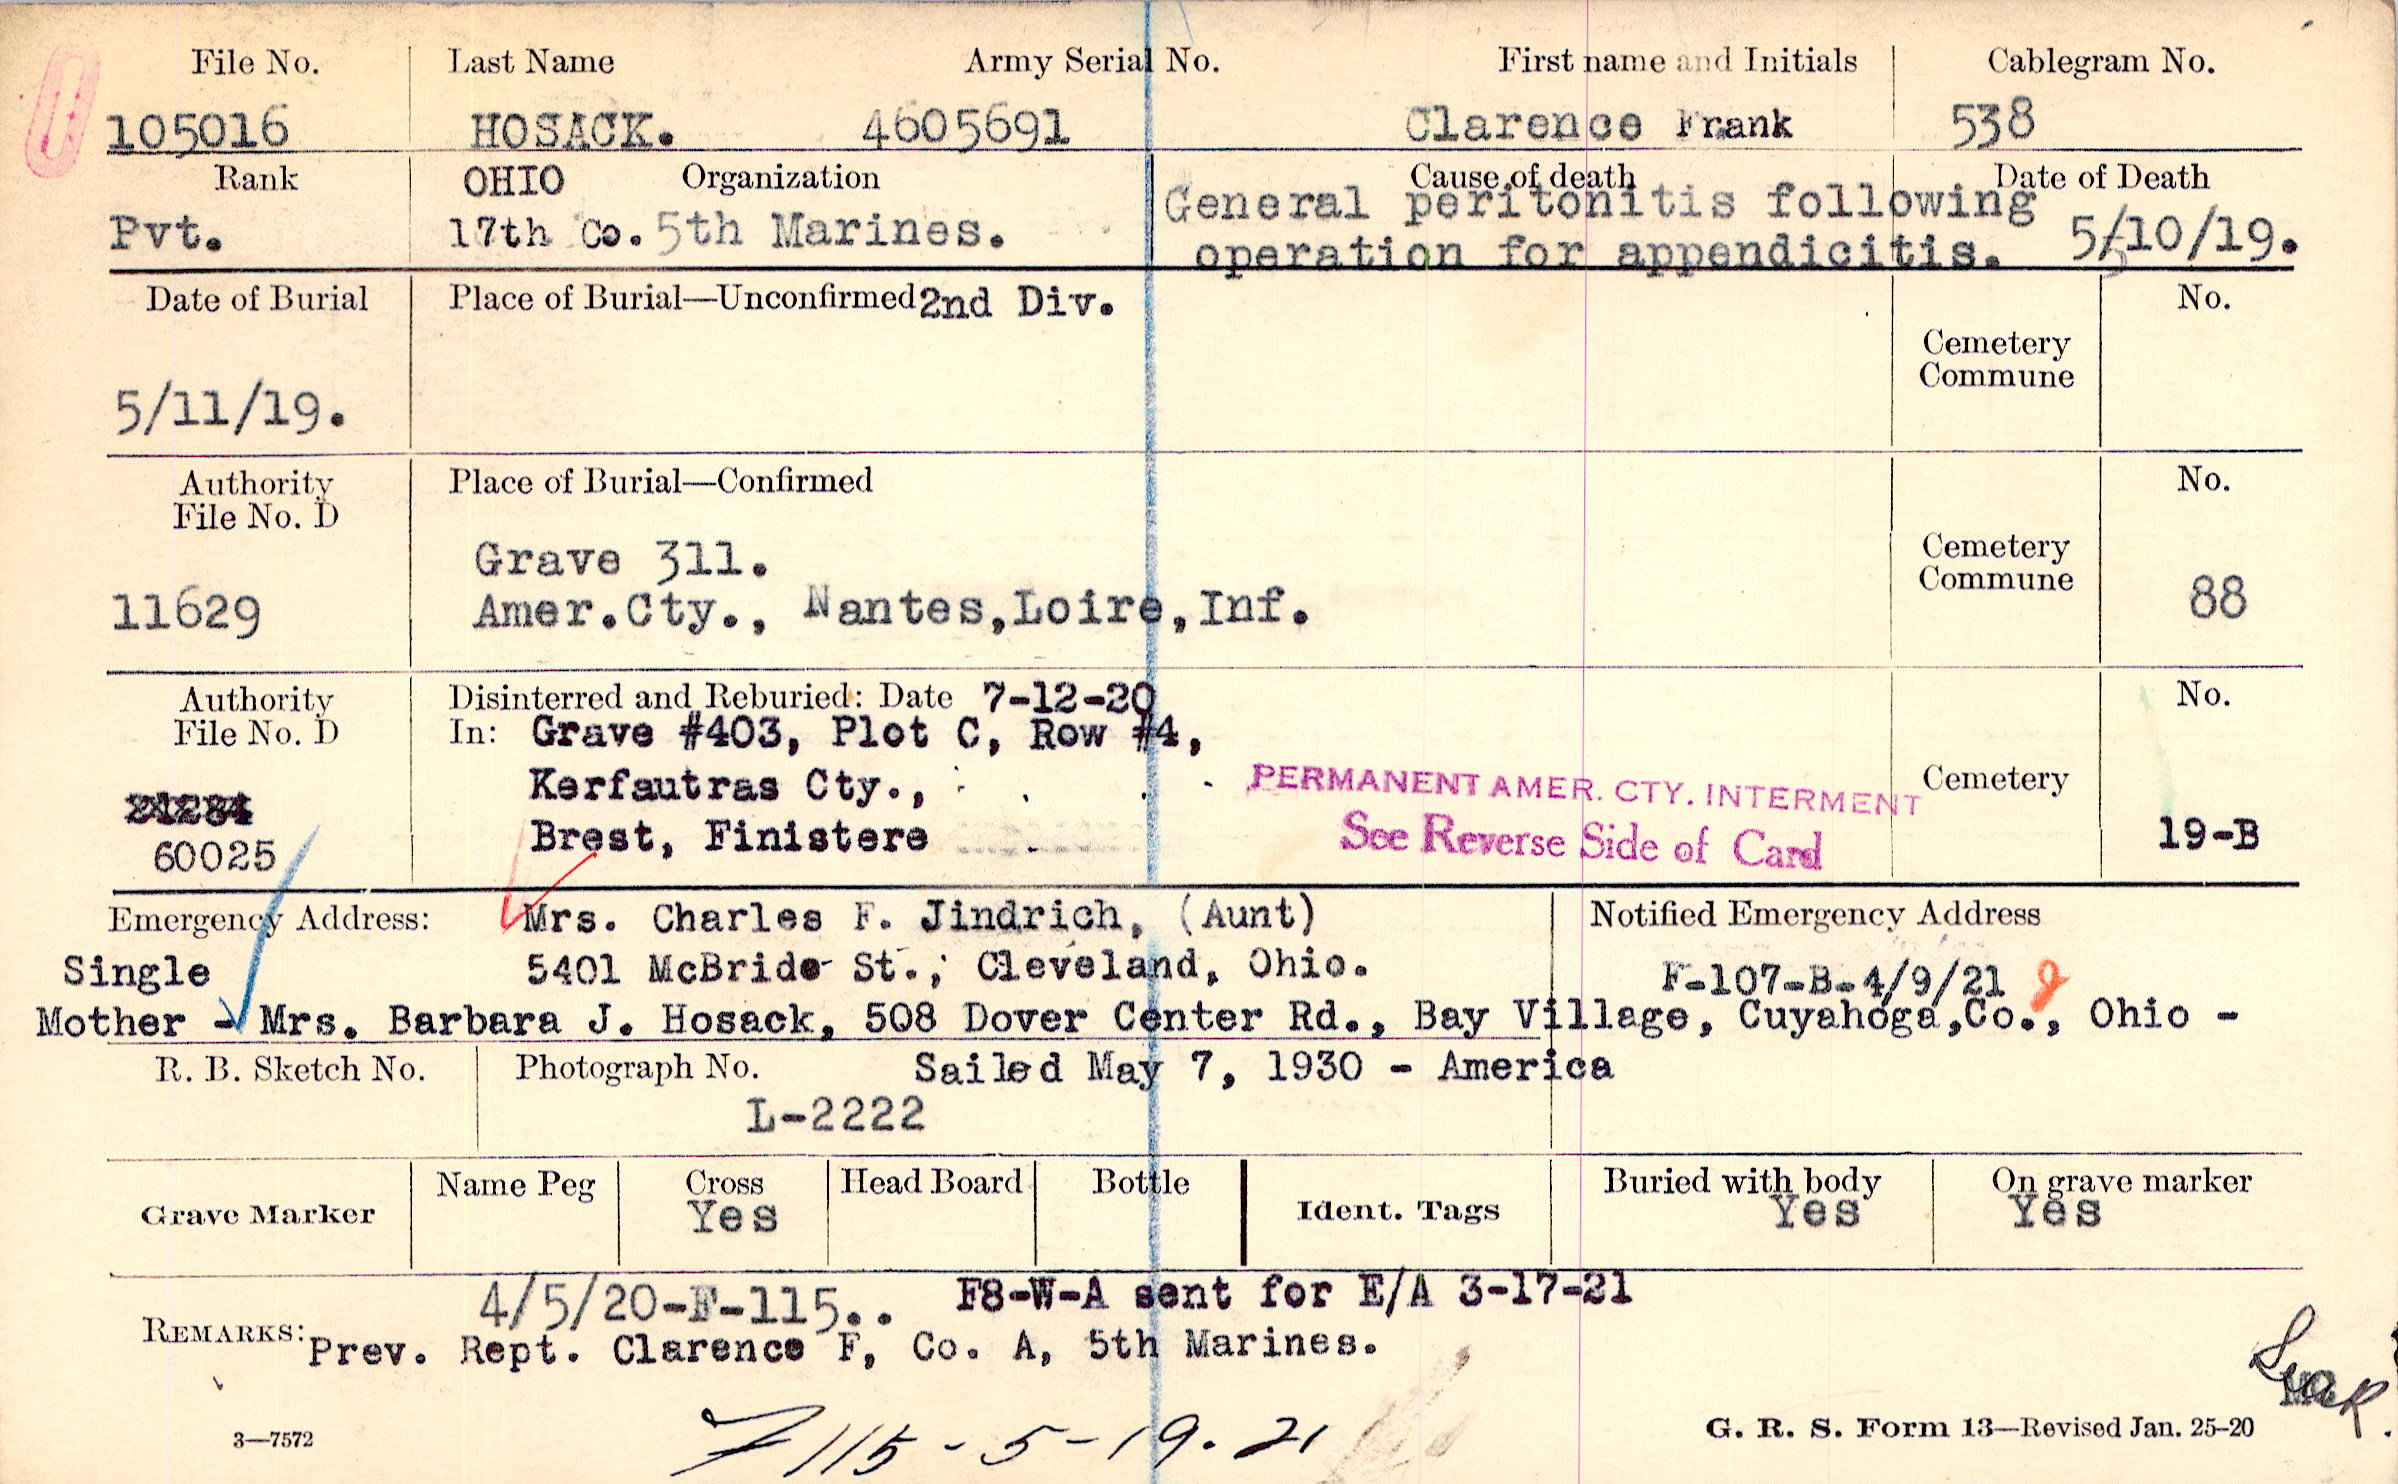 File No. Last Name Army Serial No. First name and Initials Cablegram No.
105016 HOSACK. 4605691 Clarence Frank 538
Rank OHIO Organization Cause of death Date of Death
Pvt. 17th Co. 5th Marines. General peritonitis following operation for appendicitis. 5/10/19.
Date of Burial Place of Burial—Unconfirmed 2nd Div. No.
Cemetery
Commune
5/11/19.
Authority Place of Burial—Confirmed No.
File No. D
Grave 311. Cemetery
Commune
11629 Amer.Cty., Nantes,Loire,Inf. 88
Authority Disinterred and Reburied: Date 7-12-20 No.
File No. D In: Grave #403, Plot C, Row #4,
Kerfautras Cty., PERMANENT AMER. CTY. INTERMENT Cemetery
21284 Brest, Finistere See Reverse Side of Card 19-B
60025
Emergency Address: Mrs. Charles F. Jindrich, (Aunt) Notified Emergency Address
Single 5401 McBride St., Cleveland, Ohio. F-107-B-4/9/21
Mother - Mrs. Barbara J. Hosack, 508 Dover Center Rd., Bay Village, Cuyahoga,Co., Ohio -
R. B. Sketch No. Photograph No. Sailed May 7, 1930 - America
L-2222
Grave Marker Name Peg Cross Head Board Bottle Ident. Tags Buried with body On grave marker
Yes Yes Yes
4/5/20-F-115.. F8-W-A sent for E/A 3-17-21
REMARKS: Prev. Rept. Clarence F, Co. A, 5th Marines.
3—7572 F 115-5-19-21 G. R. S. Form 13—Revised Jan. 25-20